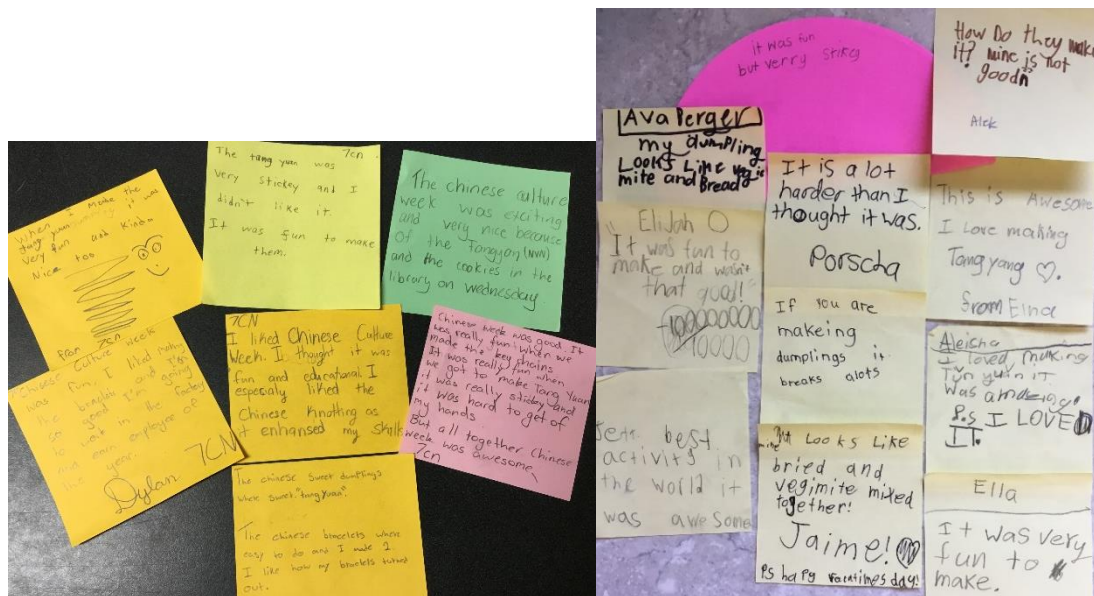 When I made the
tang yuan it was
very fun and kinda
Nice too
From 7cn
The tang yuan was 7CN
very stickey and I
didn't like it.
It was fun to make
them.
The chinese culture
week was exciting
and very nice because
of the Tangyan
and the cookies in the
library on wednesday
Chinese Culture week
was fun, I liked making
the bracelet and I'm
so good I'm going
to work in the factory
and earn employee of
the year.
7CN
Dylan
7CN
I liked Chinese Culture
Week. I thought it was
fun and educational. I
especialy liked the
Chinese Knotting as
it enhansed my skills
Chinese week was good. It
was really fun when we
made the key chains
It was really fun when
we got to make Tang Yuan
it was really sticky and
it was hard to get of
my hands
But all together Chinese
week was awesome
7cn
The chinese sweet dumplings
where sweet "tang yuan".
The chinese bracelets where
easy to do and I made 2.
I like how my braclets turned
out.
it was fun
but verry stikey
How Do they make
it? mine is not
good
Alek
Ava Perger
my dumpling
Looks Like vegie
mite and Bread
It is a lot
harder than I
thought it was.
Porscha
This is Awesome
I Love making
Tangyang
from Elna
Elijah O
"It was fun to
make and wasn't
that good!"
10000
If you are
makeing
dumplings it
breaks alots
Aleisha
I loved making
Tun yuin it
Was amazing!
P.s I LOVE
IT.
Jett best
activity in
the world it
was awesome
mine Looks Like
bried and
vegimite mixed
together!
Jaime!
Ps happy valentimes day!
Ella
It was very
fun to
make.